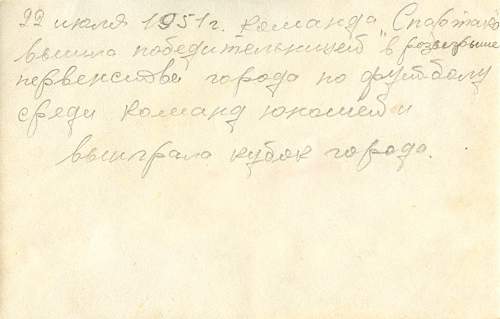 22 июля 1951 г. команда „Спартак
вышла победительницей в
первенстве города по футболу
среди команд юношей и
выиграла кубок города.